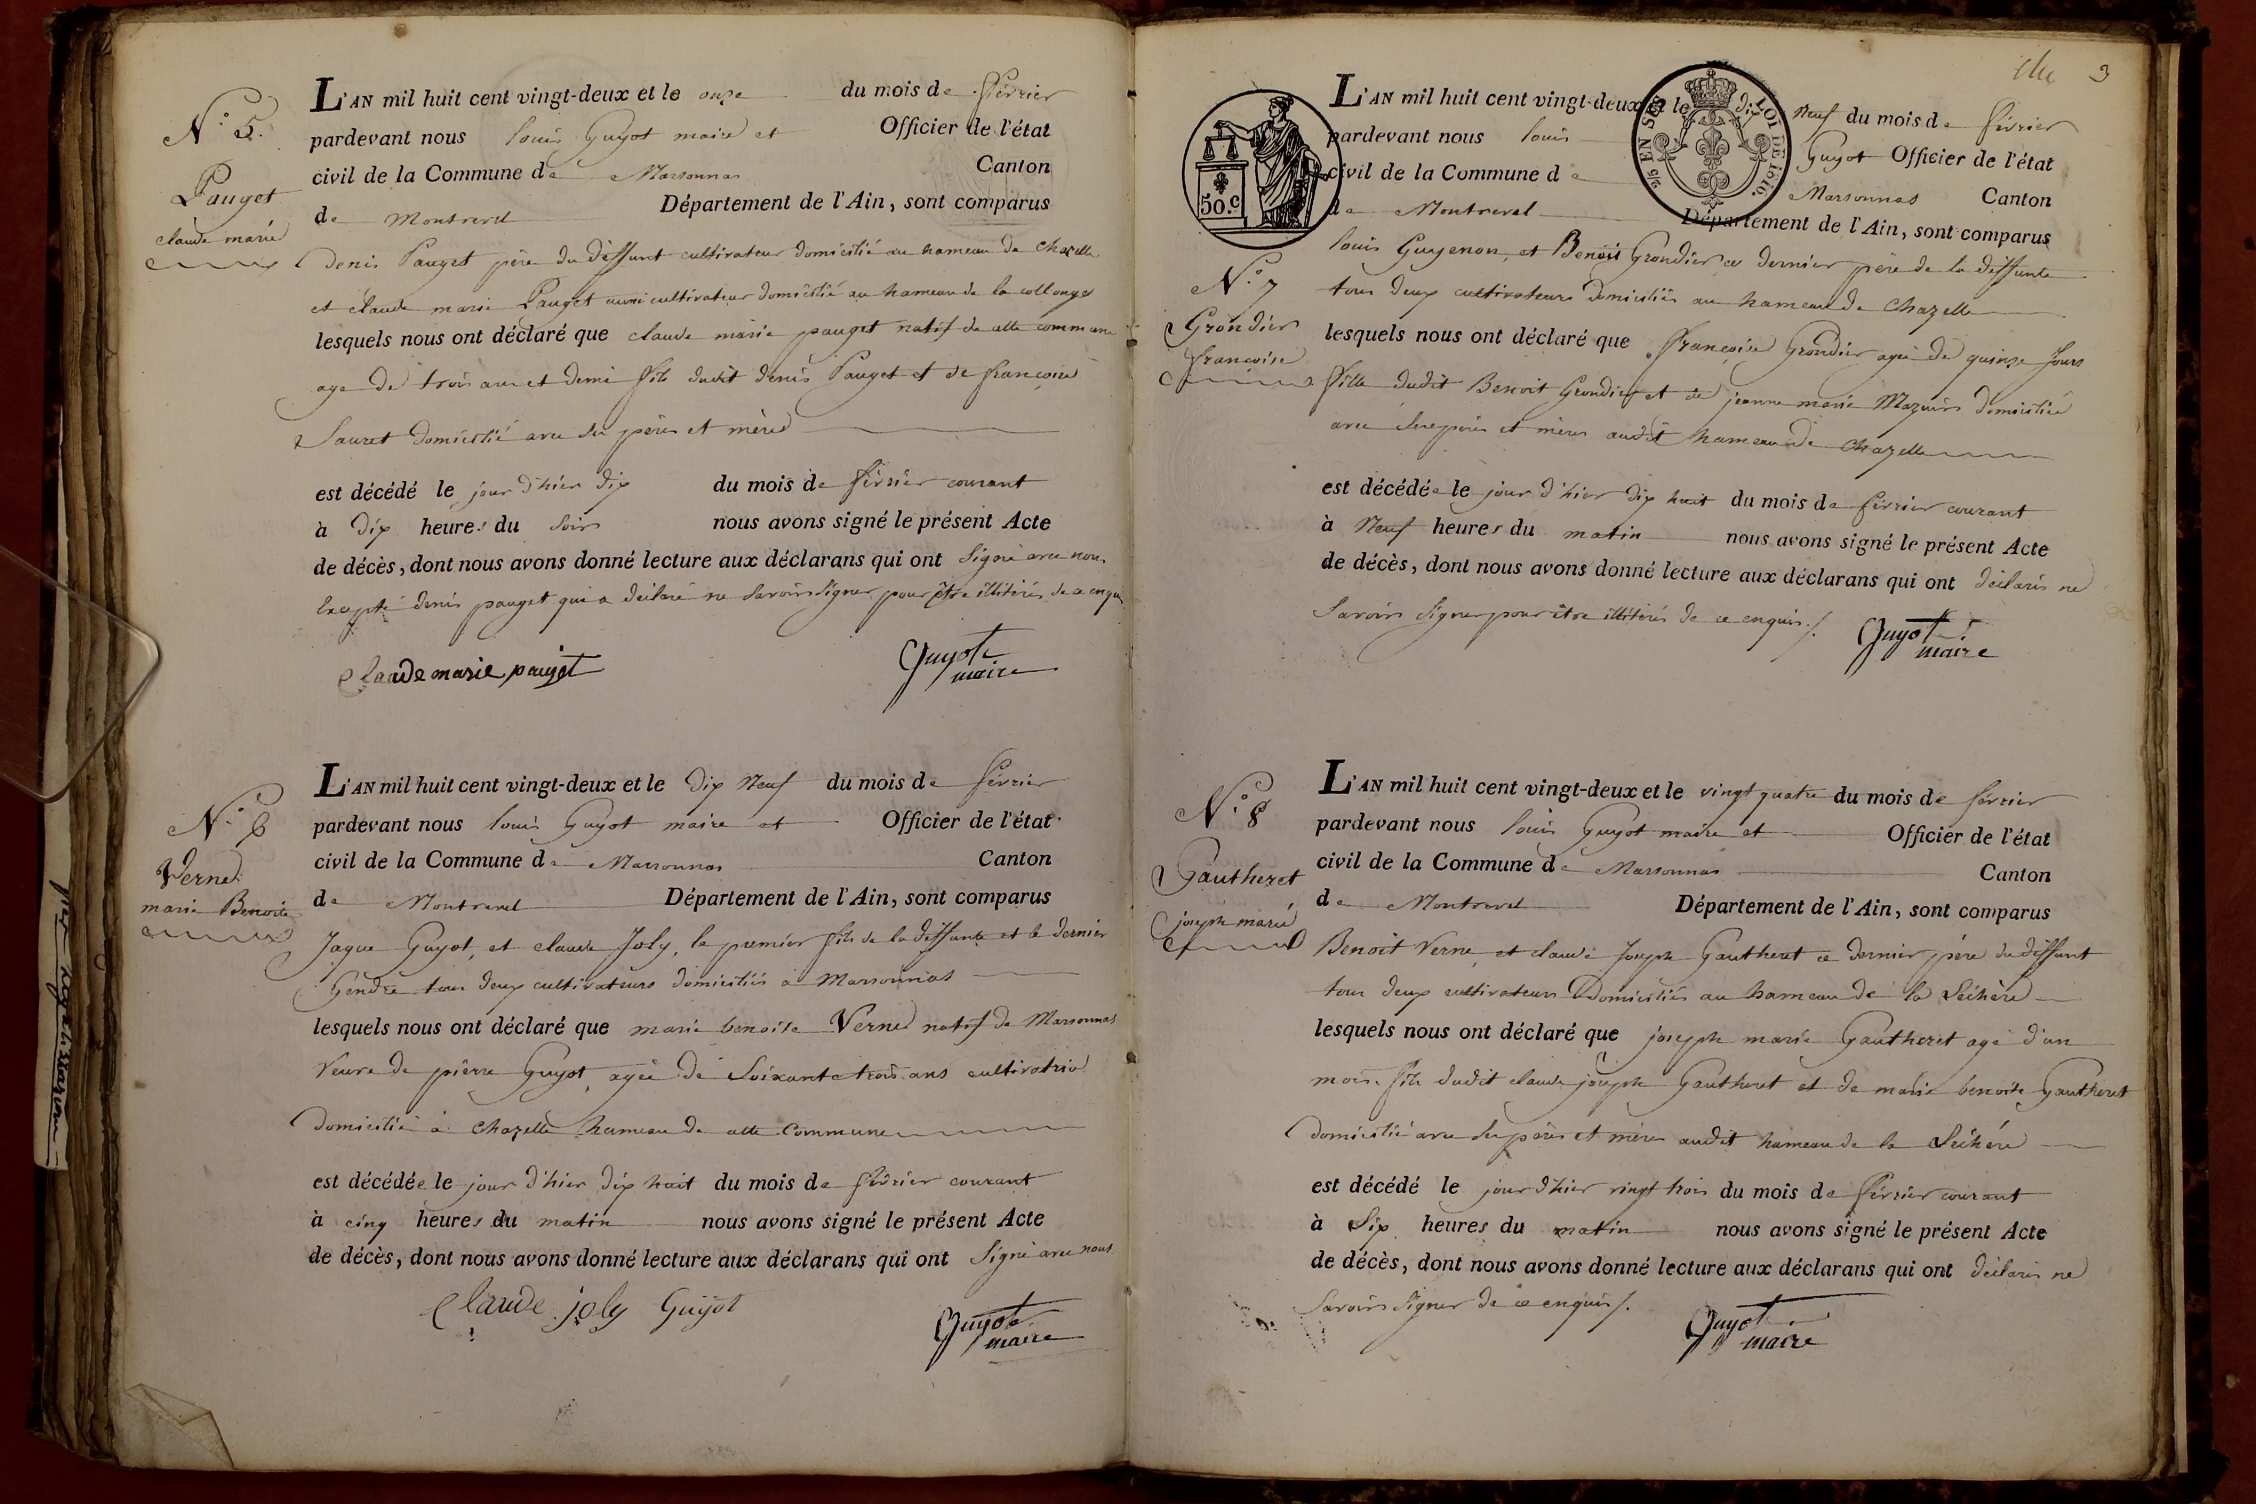 N.° 5.
Pauget
claude marie
L'AN mil huit cent vingt-deux et le onze du mois de février
pardevant nous louis Guyot maire et Officier de l'état
civil de la Commune de Marsonnas Canton
de Montrevel Département de l'Ain, sont comparus
Denis Pauget père du deffunt cultivateur domicilié au hameau de Chazelle
et claude marie Pauget aussi cultivateur domicilié au hameau de la collonge
lesquels nous ont déclaré que claude marie pauget natif de cette commune
age de trois ans et demi fils dudit denis Pauget et de françoise
Sauret domicilié avec ses pères et mères
est décédé le jour d'hier dix du mois de février courant
à dix heures du soir nous avons signé le présent Acte
de décès, dont nous avons donné lecture aux déclarans qui ont signé avec nous
Excepté denis pauget qui a déclaré ne savoir signer pour être illitérés de ce enquis
claude marie pauget Guyot
maire
N.° 6
Verne
marie Benoite
L'AN mil huit cent vingt-deux et le dix Neuf du mois de février
pardevant nous louis Guyot maire et Officier de l'état
civil de la Commune de Marsonnas Canton
de Montrevel Département de l'Ain, sont comparus
Jaque Guyot, et claude Joly, le premier fils de la deffunte et le dernier
Gendre tous deux cultivateurs domiciliés à Marsonnas
lesquels nous ont déclaré que marie benoite Verne natif de Marsonnas
Veuve de pierre Guyot, agée de soixante trois ans cultivatrice
domicilié à Chazelle hameau de cette Commune
est décédée le jour d'hier dix huit du mois de février courant
à cinq heures du matin nous avons signé le présent Acte
de décès, dont nous avons donné lecture aux déclarans qui ont signé avec nous
Claude joly Guyot
Guyot
maire
3
50.C
EN SUS
LOI DE 1816.
L'AN mil huit cent vingt-deux et le dix Neuf du mois de février
pardevant nous louis Guyot Officier de l'état
civil de la Commune de Marsonnas Canton
de Montrevel Département de l'Ain, sont comparus
N.° 7
Grondier
françoise
louis Guyenon, et Benoit Grondier ce dernier père de la deffunte
tous deux cultivateurs domiciliés au hameau de Chazelle
lesquels nous ont déclaré que françoise Grondier agée de quinze jours
fille dudit Benoit Grondier et de jeanne marie Mazuir domiciliée
avec ses pères et mères audit hameau de Chazelle
est décédée le jour d'hier dix huit du mois de février courant
à Neuf heures du matin nous avons signé le présent Acte
de décès, dont nous avons donné lecture aux déclarans qui ont déclarés ne
savoirs signer pour être illitérés de ce enquis./.
Guyot
maire
N.° 8
Gautheret
joseph marie
L'AN mil huit cent vingt-deux et le vingt quatre du mois de février
pardevant nous louis Guyot maire et Officier de l'état
civil de la Commune de Marsonnas Canton
de Montrevel Département de l'Ain, sont comparus
Benoit Verne, et claude Joseph Gautheret ce dernier père du deffunt
tous deux cultivateurs Domiciliés au hameau de la Séchère
lesquels nous ont déclaré que joseph marie Gautheret agé d'un
mois. fils dudit claude joseph Gautheret et de marie benoite Gautheret
domicilié avec ses pères et mères audit hameau de la Séchère
est décédé le jour d'hier vingt trois du mois de février courant
à Six heures du matin nous avons signé le présent Acte
de décès, dont nous avons donné lecture aux déclarans qui ont déclarés ne
savoirs signer de ce enquis/.
Guyot
maire